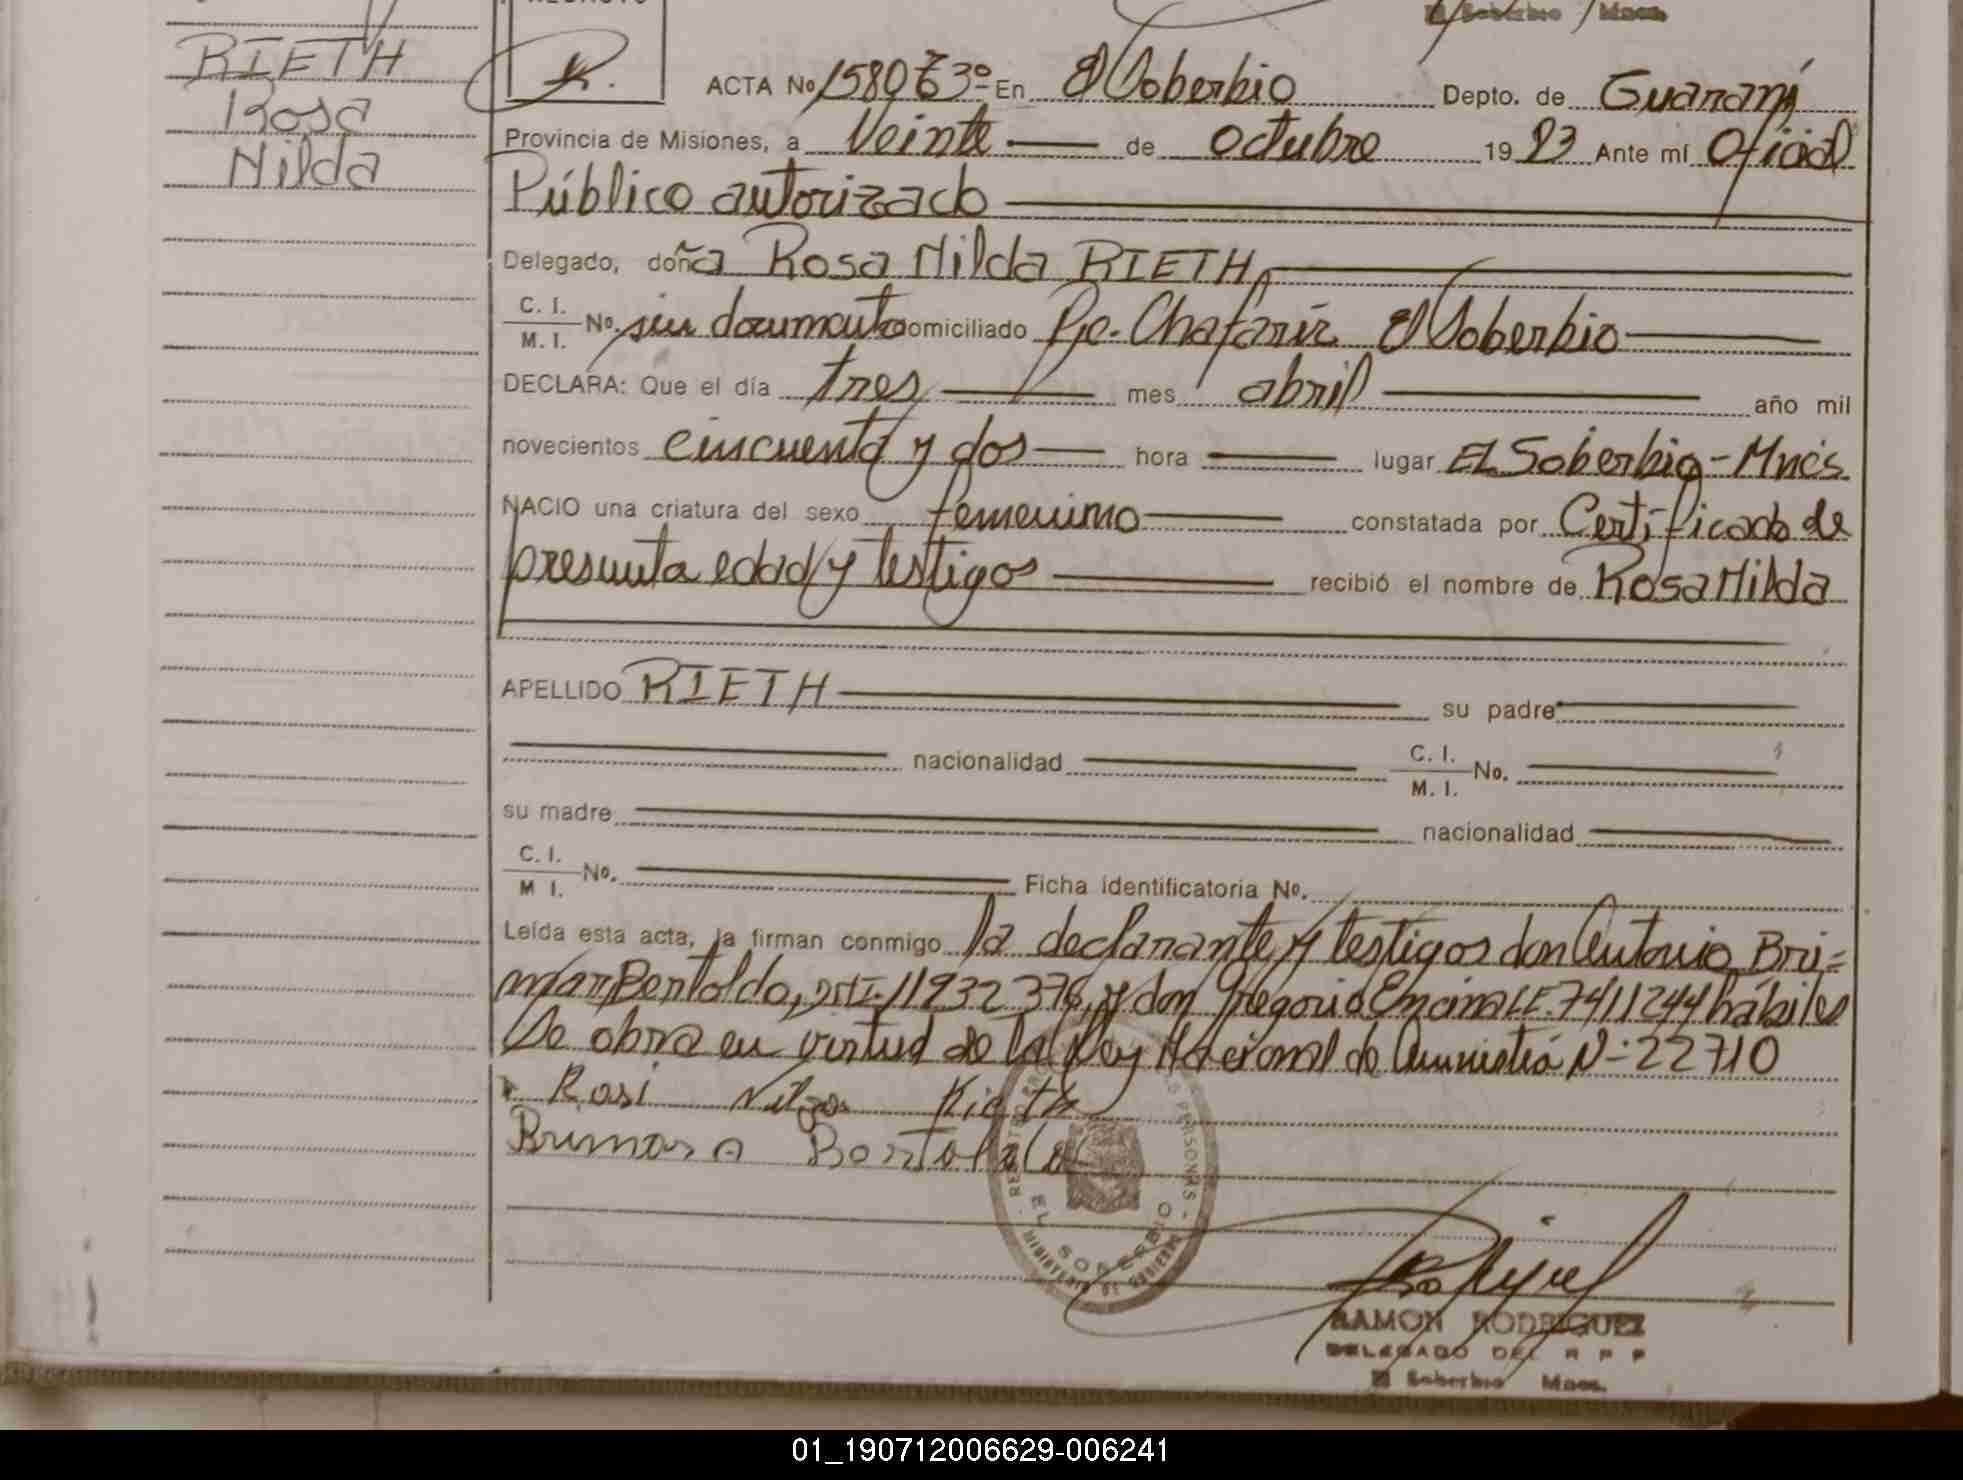 RIETH
Rosa
Nilda
ACTA No 1580 T 63º En El Soberbio Depto. de Guaraní
Provincia de Misiones, a Veinte de Octubre 1983 Ante mí Oficial
Público autorizado
Delegado, doña Rosa Nilda RIETH,
C. I.
M. I. No. sin documento domiciliado Pje. Chafariz El Soberbio
DECLARA: Que el día tres mes abril año mil
novecientos cincuenta y dos hora lugar EL Soberbio - Mnes
NACIO una criatura del sexo femenino constatada por Certificado de
presunta edad y testigos recibió el nombre de Rosa Nilda
APELLIDO RIETH su padre
nacionalidad C. I.
M. I. No.
su madre nacionalidad
C. I.
M I. No. Ficha identificatoria No.
Leída esta acta, la firman conmigo la declarante y testigos don Antonio Bri=
mar Bertoldo, DNI. 11932376, y don Gregorio Encina LE. 7411244 hábiles
Se obra en virtud de la Ley Nacional de Amnistía N-: 22710
Rosi Nilza Rieth
EL SOBERBIO
RAMON RODRIGUEZ
DELEGADO DEL R P P
El Soberbio Mnes.
01_190712006629-006241